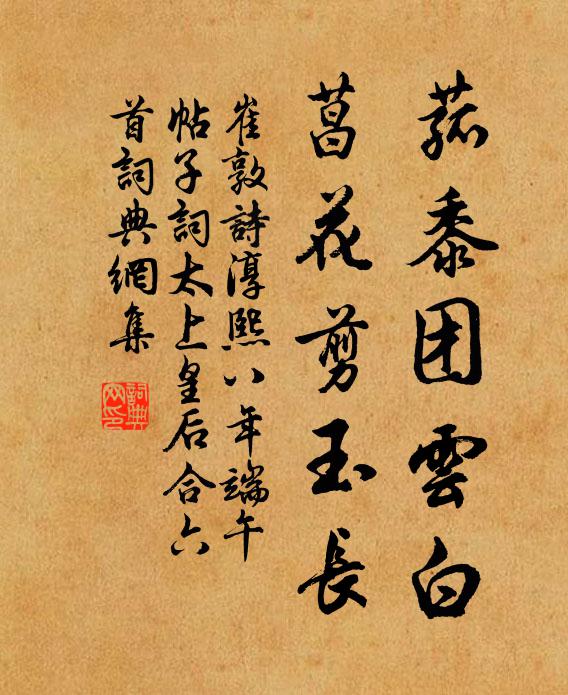 菰黍团雲白
菖花剪玉長
崔敦詩淳熙八年端午
帖子詞太上皇后合六
首詞典網集
詞典
网印